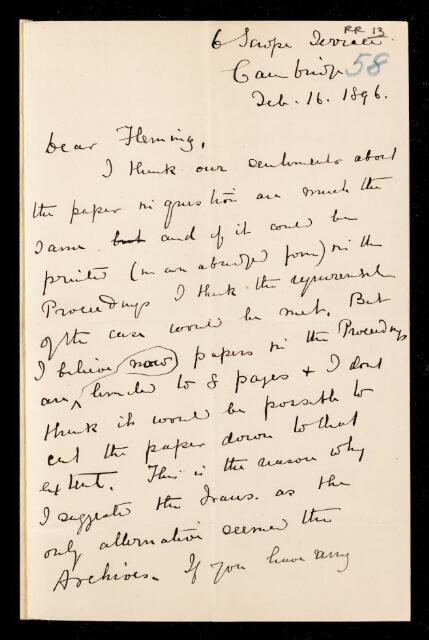 RR 13
6 Scrope Terrace.
Cambridge 58
Feb. 16. 1896.
Dear Fleming,
I think our sentiments about
the paper in question are much the
same but and if it could be
printed (in an abridged form) in the
Proceedings I think the requirements
of the case would be met. But
I believe now papers in the Proceedings
are limited to 8 pages & I dont
think it would be possible to
cut the paper down to that
extent. This is the reason why
I suggested the Trans. as the
only alternative seemed the
Archives. If you have any